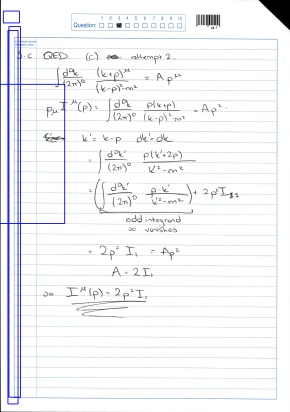 Question: 1 2 3 4 5 6 7 8 9 10
3.c QED (c) attempt 2.
∫ d^Dk/(2π)^D (k+p)^μ/((k-p)²-m²) = A p^μ
p_μ I^μ(p) = ∫ d^Dk/(2π)^D p(k+p)/((k-p)²-m²) = Ap².
k' = k-p dk' = dk
= ∫ d^Dk'/(2π)^D p(k'+2p)/(k'²-m²)
= (∫ d^Dk'/(2π)^D p·k'/(k'²-m²)) + 2p² I₁
odd integrand
so vanishes
= 2p² I₁ = Ap²
A = 2I₁
so I^μ(p) = 2p² I₁